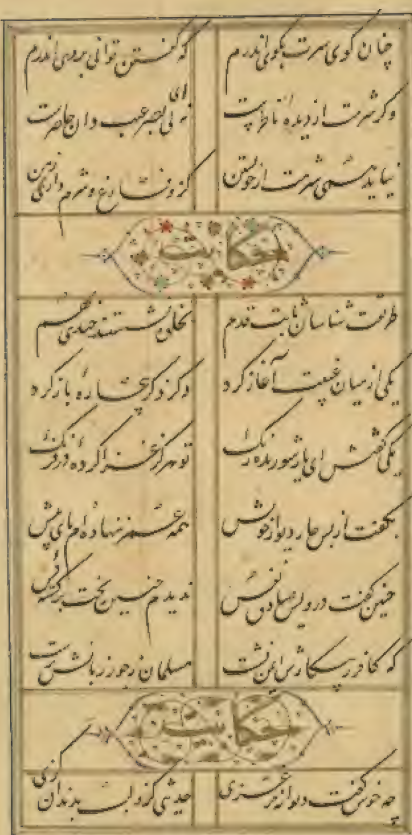 چنان گوی سیرت بکوی اندرم که گفتن توانی بروی اندرم
وگر شرمت از دیده ناظرست نه ای بی بصر غیب دان حاضرست
نیاید همی شرمت از خویشتن کزو فارغ و شرم داری ز من
حکایت
طریقت شناسان ثابت قدم بخلوت نشستند چندی بهم
یکی زان میان غیبت آغاز کرد در ذکر بیچاره باز کرد
یکی گفتش ای یار شوریده رنگ تو هرگز غزا کرده در فرنگ
بگفت از پس چار دیوار خویش همه عمر ننهاده ام پای پیش
چنین گفت درویش صادق نفس ندیدم چنین بخت برگشته کس
که کافر ز پیکارش ایمن نشست مسلمان ز جور زبانش نرست
حکایت
چه خوش گفت دیوانه مرغزی حدیثی کزو لب بدندان گزی